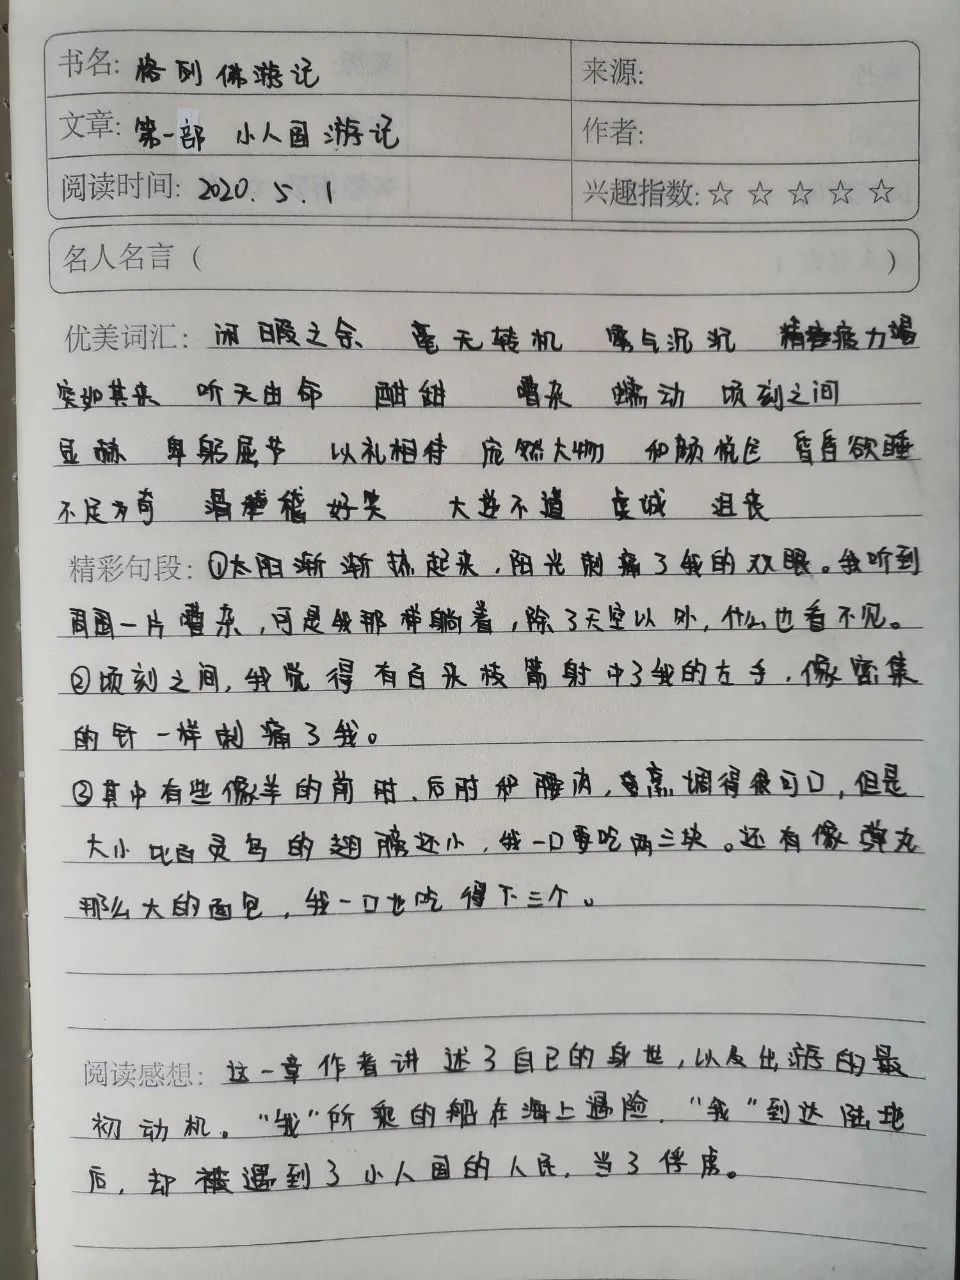 书名: 格列佛游记 来源:
文章: 第一部 小人国游记 作者:
阅读时间: 2020.5.1 兴趣指数: ☆ ☆ ☆ ☆ ☆
名人名言 ( )
优美词汇: 闲暇之余 毫无转机 雾气沉沉 精疲力竭
突如其来 听天由命 酣甜 嘈杂 蠕动 顷刻之间
显赫 卑躬屈节 以礼相待 庞然大物 和颜悦色 昏昏欲睡
不足为奇 滑稽好笑 大逆不道 虔诚 沮丧
精彩句段: ①太阳渐渐热起来,阳光刺痛了我的双眼。我听到
周围一片嘈杂,可是我那样躺着,除了天空以外,什么也看不见。
②顷刻之间,我觉得有百来枝箭射中了我的左手,像密集
的针一样刺痛了我。
③其中有些像羊的前肘、后肘和腰肉,烹调得很可口,但是
大小比百灵鸟的翅膀还小,我一口要吃两三块。还有像弹丸
那么大的面包,我一口也吃得下三个。
阅读感想: 这一章作者讲述了自己的身世,以及出游的最
初动机。“我”所乘的船在海上遇险,“我”到达陆地
后,却被遇到了小人国的人民,当了俘虏。